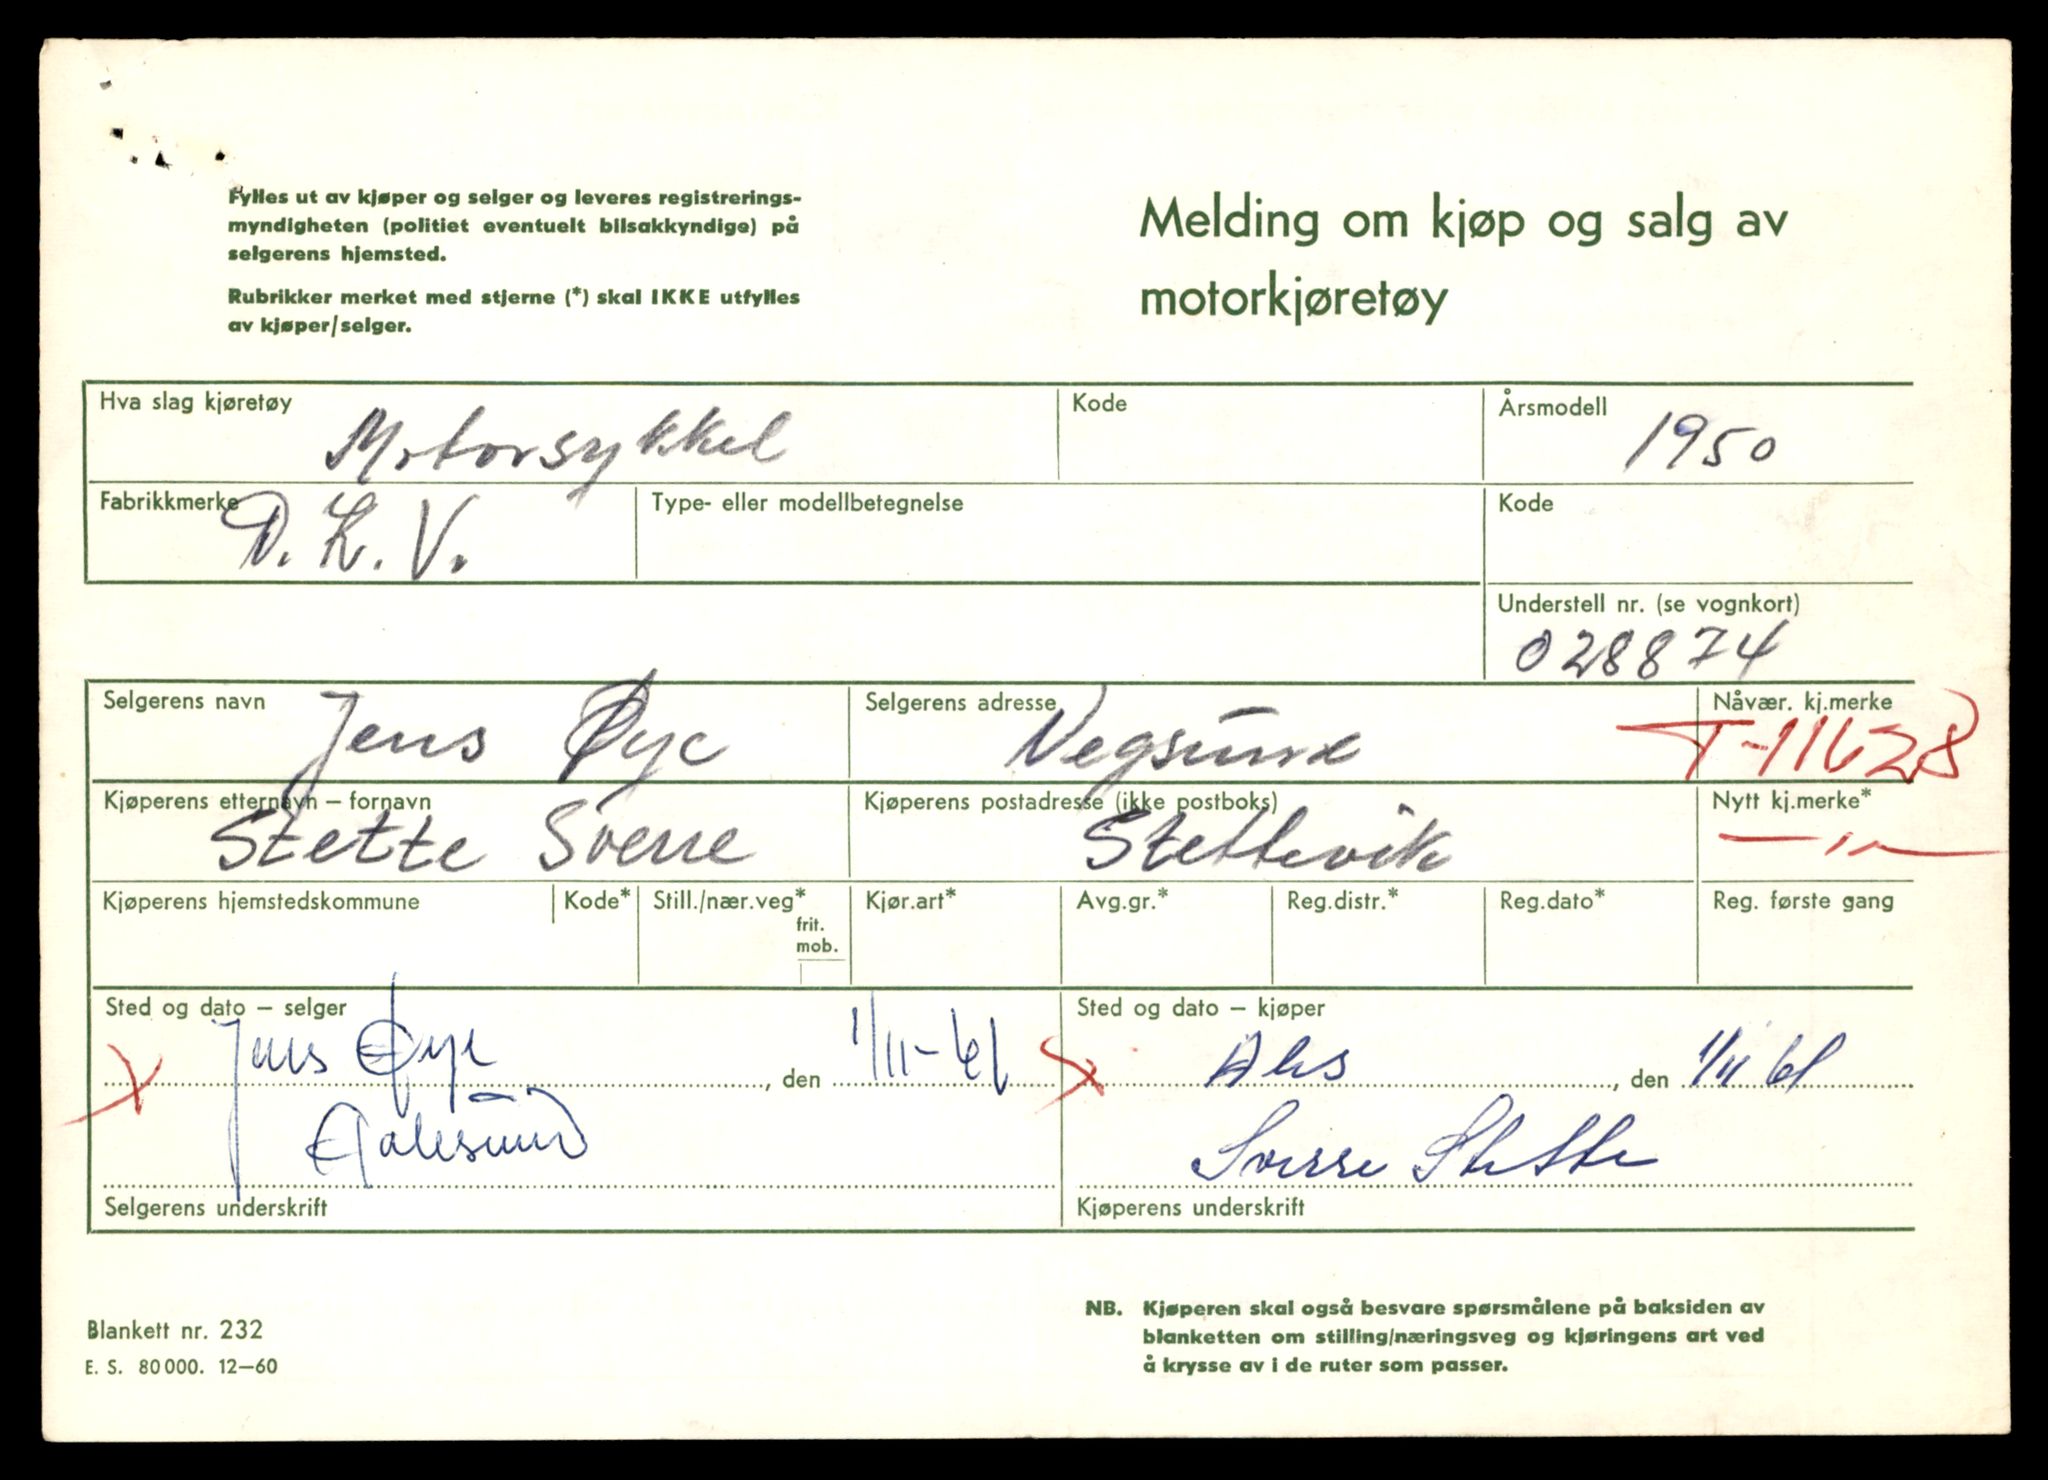 Fylles ut av kjøper og selger og leveres registrerings-
myndigheten (politiet eventuelt bilsakkyndige) på
selgerens hjemsted.
Rubrikker merket med stjerne (*) skal IKKE utfylles
av kjøper/selger.
Melding om kjøp og salg av
motorkjøretøy
Hva slag kjøretøy Motorsykkel
Kode
Årsmodell 1950
Fabrikkmerke D.K.V.
Type- eller modellbetegnelse
Kode
Understell nr. (se vognkort)
028874
Selgerens navn Jens Øye
Selgerens adresse Vegsund
Nåvær. kj.merke
T-11628
Kjøperens etternavn – fornavn
Stette Sverre
Kjøperens postadresse (ikke postboks)
Stettevik
Nytt kj.merke*
—〃—
Kjøperens hjemstedskommune
Kode*
Still./nær.veg*
frit.
mob.
Kjør.art*
Avg.gr.*
Reg.distr.*
Reg.dato*
Reg. første gang
Sted og dato – selger
Jens Øye, den 1/11-61
Aalesund
Selgerens underskrift
Sted og dato – kjøper
x Ales, den 1/11 61
Sverre Stette
Kjøperens underskrift
Blankett nr. 232
E. S. 80 000. 12–60
NB. Kjøperen skal også besvare spørsmålene på baksiden av
blanketten om stilling/næringsveg og kjøringens art ved
å krysse av i de ruter som passer.